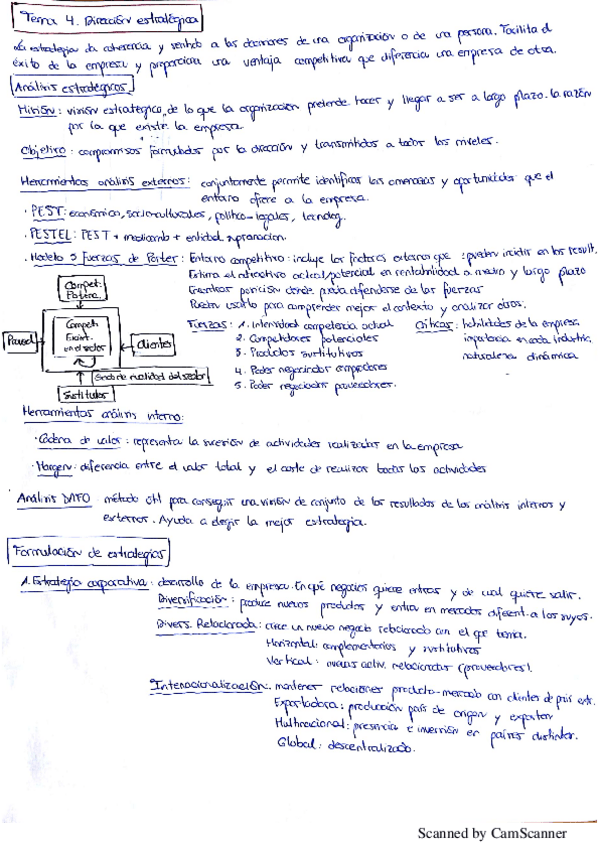 Tema 4. Dirección estratégica
La estrategia da coherencia y sentido a las decisiones de una organización o de una persona. Facilita el
éxito de la empresa y proporciona una ventaja competitiva que diferencia una empresa de otra.
Análisis estratégicos
Misión: visión estratégica, de lo que la organización pretende hacer y llegar a ser a largo plazo. La razón
por la que existe la empresa
Objetivo: compromisos formulados por la dirección y transmitidos a todos los niveles.
Herramientas análisis externos: conjuntamente permite identificar las amenazas y oportunidades que el
entorno ofrece a la empresa.
· PEST: económicos, socioculturales, político-legales, tecnolog.
· PESTEL: PEST + medioamb + entidad supranacion.
· Modelo 5 Fuerzas de Porter: Entorno competitivo: incluye los factores externos que pueden incidir en los result.
Estima el atractivo actual/potencial en rentabilidad a medio y largo plazo
Encontrar posición donde pueda defenderse de las fuerzas
Pueden usarlo para comprender mejor el contexto y analizar otros.
Compet.
Potenc.
Proveed
Compet.
Exist.
en el sector
Clientes
Grado de rivalidad del sector
Sustitutos
Fuerzas: 1. Intensidad competencia actual
2. Competidores potenciales
3. Productos sustitutivos
4. Poder negociador compradores
5. Poder negociador proveedores.
Críticas: habilidades de la empresa,
importancia en cada industria,
naturaleza dinámica
Herramientas análisis interno:
· Cadena de valor: representa la sucesión de actividades realizadas en la empresa
· Margen: diferencia entre el valor total y el coste de realizar todas las actividades
Análisis DAFO método útil para conseguir una visión de conjunto de los resultados de los análisis internos y
externos. Ayuda a elegir la mejor estrategia.
Formulación de estrategias
1. Estrategia corporativa: desarrollo de la empresa. En qué negocios quiere entrar y de cual quiere salir.
Diversificación: produce nuevos productos y entra en mercados diferent. a los suyos.
Divers. Relacionada: crea un nuevo negocio relacionado con el que tenía.
Horizontal: complementarios y sustitutivos
Vertical: nuevas activ. relacionadas (proveedores).
Internacionalización: mantener relaciones producto-mercado con clientes de país ext.
Exportadora: producción país de origen y exportan
Multinacional: presencia e inversión en países distintos.
Global: descentralizado.
Scanned by CamScanner